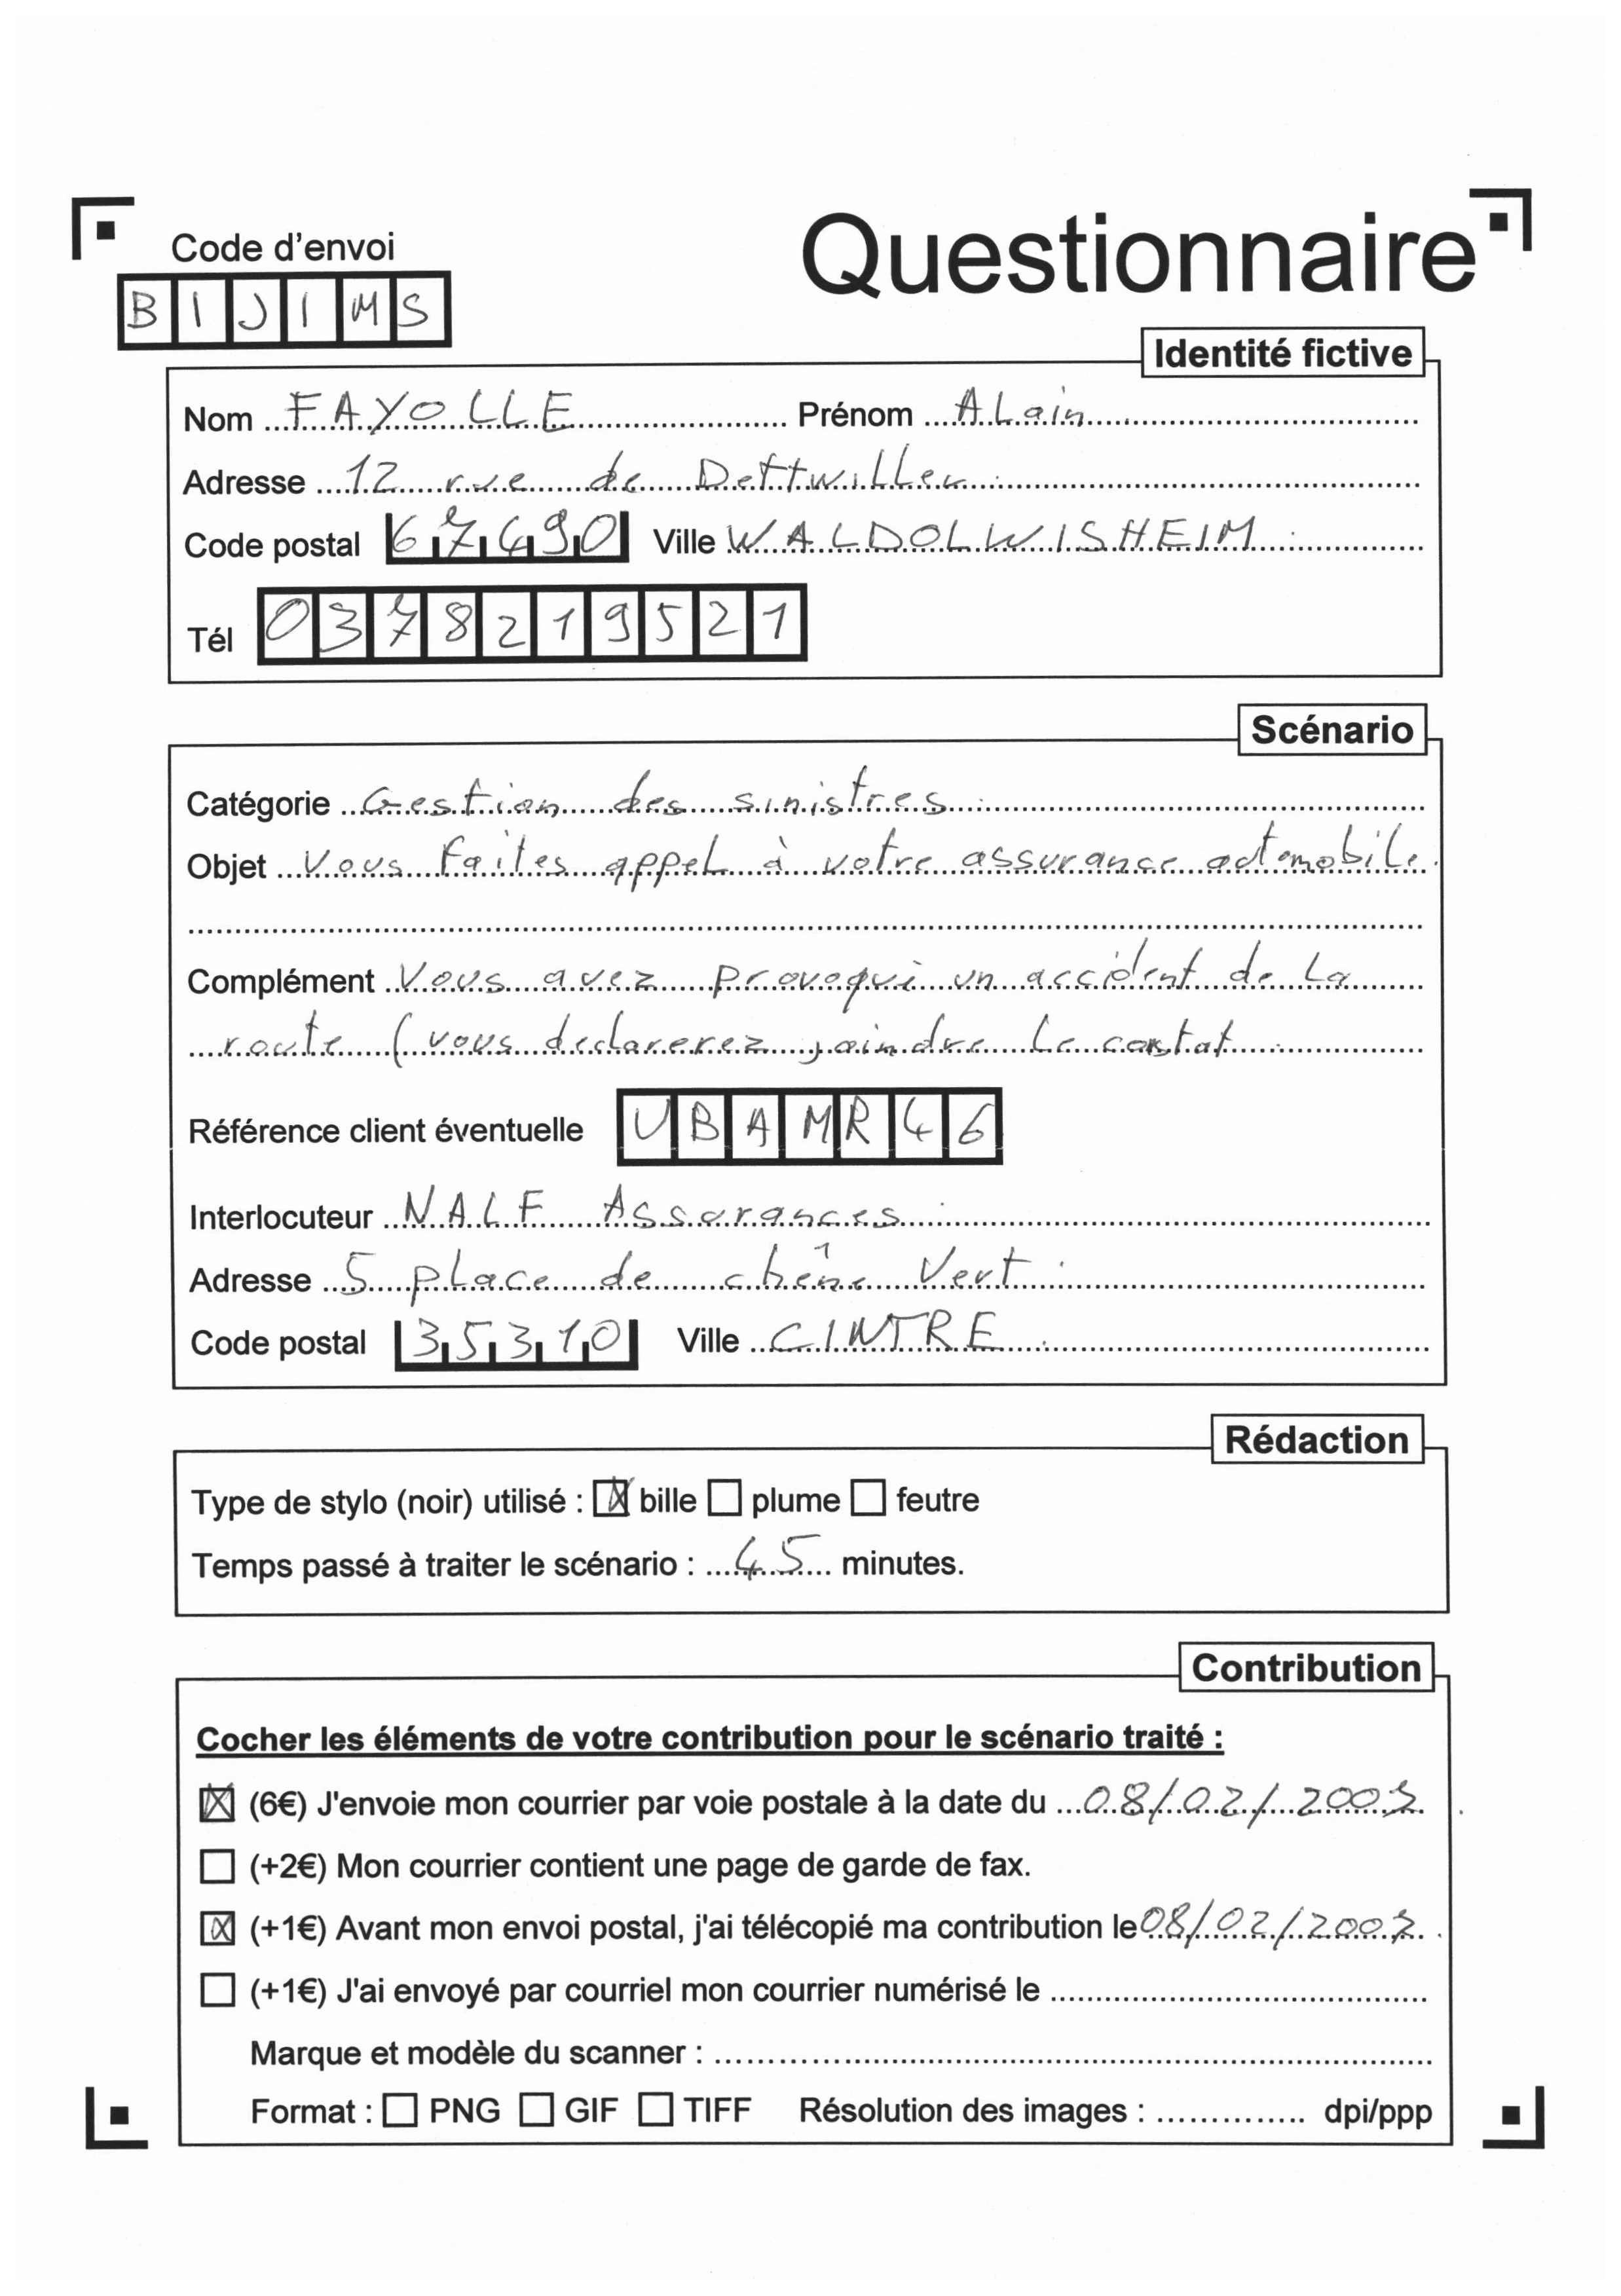 Code d'envoi
Questionnaire
BIJIMS
Identité fictive
Nom FAYOLLE Prénom ALain
Adresse 12 rue de Dettwiller
Code postal 67490 Ville WALDOLWISHEIM
Tél 0378219521
Scénario
Catégorie Gestion des sinistres
Objet Vous faites appel à votre assurance automobile.
Complément Vous avez provoqué un accident de la
route (vous declarerez joindre le constat
Référence client éventuelle UBAMR46
Interlocuteur NALF Assurances
Adresse 5 place de chêne Vert
Code postal 35310 Ville CINTRE
Rédaction
Type de stylo (noir) utilisé : ☒ bille ☐ plume ☐ feutre
Temps passé à traiter le scénario : 45 minutes.
Contribution
Cocher les éléments de votre contribution pour le scénario traité :
☒ (6€) J'envoie mon courrier par voie postale à la date du 08/02/
☐ (+2€) Mon courrier contient une page de garde de fax.
☒ (+1€) Avant mon envoi postal, j'ai télécopié ma contribution le 08/02/
☐ (+1€) J'ai envoyé par courriel mon courrier numérisé le
Marque et modèle du scanner :
Format : ☐ PNG ☐ GIF ☐ TIFF Résolution des images : dpi/ppp